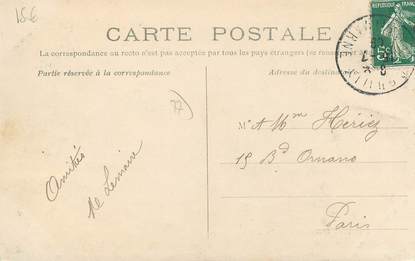 15€
CARTE POSTALE
La correspondance au recto n'est pas acceptée par tous les pays étrangers (se
Partie réservée à la correspondance
Adresse du destina
REPUBLIQUE FRANÇAISE
5c
77
M A Mm Héricz
15 Bd Ornano
Paris
Amitiés
Lemaire